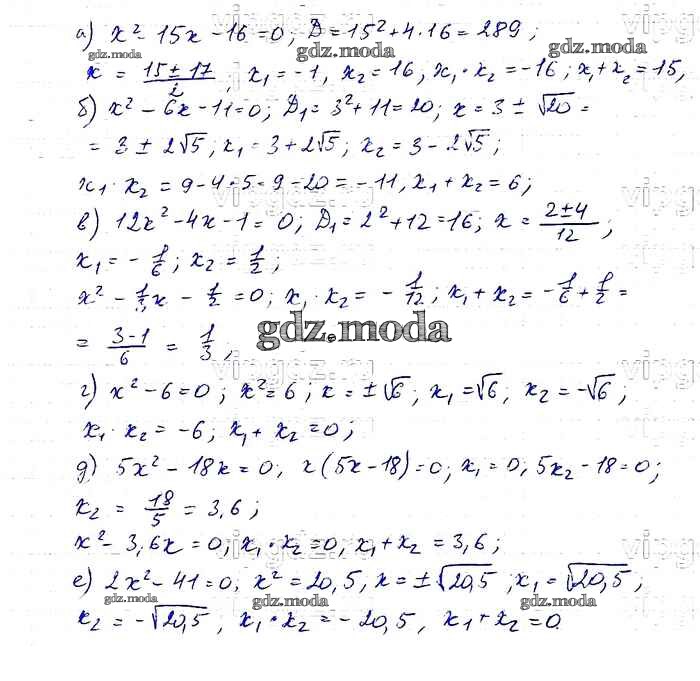 а) x² - 15x - 16 = 0; D = 15² + 4·16 = 289;
x = (15 ± 17)/2, x₁ = -1, x₂ = 16; x₁·x₂ = -16; x₁ + x₂ = 15,
б) x² - 6x - 11 = 0; D₁ = 3² + 11 = 20; x = 3 ± √20 =
= 3 ± 2√5; x₁ = 3 + 2√5; x₂ = 3 - 2√5;
x₁·x₂ = 9 - 4·5 = 9 - 20 = -11, x₁ + x₂ = 6;
в) 12x² - 4x - 1 = 0; D₁ = 2² + 12 = 16; x = (2 ± 4)/12;
x₁ = -1/6; x₂ = 1/2;
x² - 1/3x - 1/2 = 0; x₁·x₂ = -1/12; x₁ + x₂ = -1/6 + 1/2 =
= (3 - 1)/6 = 1/3;
gdz.moda
г) x² - 6 = 0; x² = 6; x = ±√6; x₁ = √6, x₂ = -√6;
x₁·x₂ = -6; x₁ + x₂ = 0;
д) 5x² - 18x = 0; x(5x - 18) = 0; x₁ = 0, 5x₂ - 18 = 0;
x₂ = 18/5 = 3,6;
x² - 3,6x = 0; x₁·x₂ = 0, x₁ + x₂ = 3,6;
е) 2x² - 41 = 0; x² = 20,5, x = ±√20,5; x₁ = √20,5;
x₂ = -√20,5, x₁·x₂ = -20,5, x₁ + x₂ = 0.